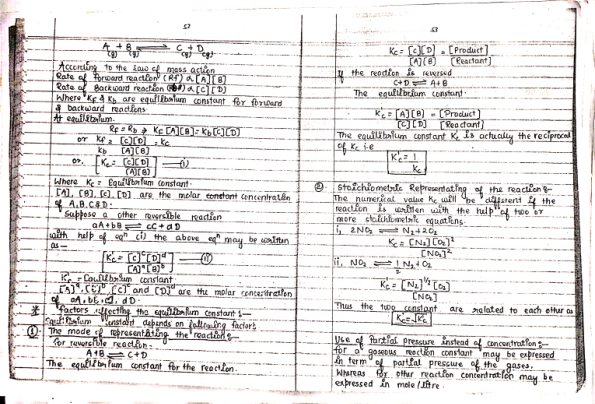 52
A + B ⇌ C + D
(g) (g) (g) (g)
According to the Law of mass action
Rate of forward reaction (Rf) α [A][B]
Rate of Backward reaction α [C][D]
Where Kf & Kb are equilibrium constant for forward
& backward reactions.
At equilibrium.
Rf = Rb ⇒ Kf [A][B] = Kb [C][D]
or Kf/Kb = [C][D]/[A][B] = Kc
or. Kc = [C][D]/[A][B] —(i)
Where Kc = Equilibrium constant.
[A], [B], [C], [D] are the molar constant concentration
of A, B, C & D.
Suppose a other reversible reaction
aA + bB ⇌ cC + dD
with help of eqⁿ (i) the above eqⁿ may be written
as—
Kc = [C]ᶜ[D]ᵈ/[A]ᵃ[B]ᵇ —(ii)
Kc = Equilibrium constant
and [D]ᵈ are the molar concentration
of
Factors affecting the equilibrium constant :-
Equilibrium constant depends on following factors
① The mode of representating the reaction :-
for reversible reaction :-
A + B ⇌ C + D
The equilibrium constant for the reaction.
53
Kc = [C][D]/[A][B] = [Product]/[Reactant]
If the reaction is reversed
C + D ⇌ A + B
The equilibrium constant.
K'c = [A][B]/[C][D] = [Product]/[Reactant]
The equilibrium constant Kc is actually the reciprocal
of Kc i.e
K'c = 1/Kc
② Stoichiometric Representating of the reaction :-
The numerical value Kc will be different if the
reaction is written with the help of two or
more stoichiometric equations.
i, 2NO₂ ⇌ N₂ + 2O₂
Kc = [N₂][O₂]²/[NO₂]²
ii, NO₂ ⇌ 1/2 N₂ + O₂
K'c = [N₂]^1/2 [O₂]/[NO₂]
Thus the two constant are related to each other as
K'c = √Kc
Use of Partial pressure instead of concentration :-
for a gaseous reaction constant may be expressed
in term of partial pressure of the gases.
Whereas for other reaction concentration may be
expressed in mole/litre.